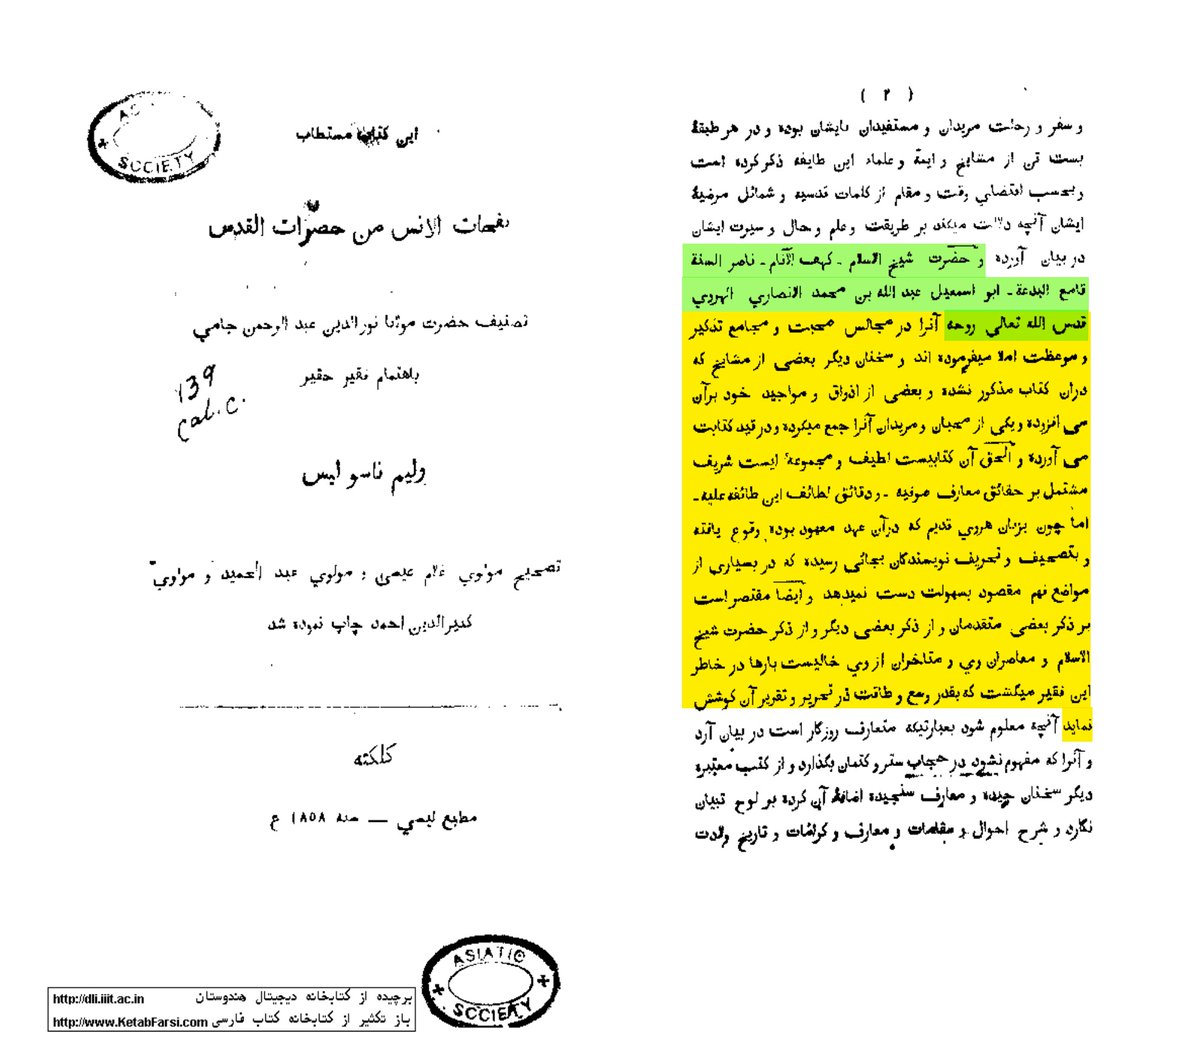 AS
SOCIETY
این کتاب مستطاب
نفحات الانس من حضرات القدس
تصنیف حضرت مولانا نورالدین عبد الرحمن جامي
باهتمام فقیر حقیر
139
Cal. C.
ولیم ناسو لیس
تصحیح مولوي غلام عیسی و مولوي عبد الحمید و مولوي
کبیرالدین احمد چاپ نموده شد
کلکته
مطبع لیسي — سنه ۱۸۵۸ ع
ASIATIC
SOCIETY
http://dli.iiit.ac.in برچیده از کتابخانه دیجیتال هندوستان
http://www.KetabFarsi.com باز تکثیر از کتابخانه کتاب فارسی
( ۲ )
و سفر و رحلت مریدان و مستفیدان بایشان بوده و در هر طبقهٔ
بست تن از مشایخ و ایمهٔ و علماء این طایفه ذکر کرده است
و بحسب اقتضاي وقت و مقام از کلمات قدسیه و شمائل مرضیهٔ
ایشان آنچه دلالت میکند بر طریقت و علم و حال و سیرت ایشان
در بیان آورده و حضرت شیخ الاسلام - کهف الانام - ناصر السنة
قامع البدعة - ابو اسمعیل عبد الله بن محمد الانصاري الهروي
قدس الله تعالی روحه آنرا در مجالس صحبت و مجامع تذکیر
و موعظت املا میفرموده اند و سخنان دیگر بعضی از مشایخ که
دران کتاب مذکور نشده و بعضی از اذواق و مواجید خود برآن
می افزوده و یکی از محبان و مریدان آنرا جمع میکرده و در قید کتابت
می آورده و الحق آن کتابیست لطیف و مجموعهٔ ایست شریف
مشتمل بر حقائق معارف صوفیه - و دقائق لطائف این طائفه علیه -
اما چون بزبان هروي قدیم که درآن عهد معهود بوده وقوع یافته
و بتصحیف و تحریف نویسندگان بجائی رسیده که در بسیاري از
مواضع فهم مقصود بسهولت دست نمیدهد و ایضا مقتصر است
بر ذکر بعضی متقدمان و از ذکر بعضی دیگر و از ذکر حضرت شیخ
الاسلام و معاصران وي و متاخران از وي خالیست بارها در خاطر
این فقیر میگشت که بقدر وسع و طاقت در تحریر و تقریر آن کوشش
نماید آنچه معلوم شود بعبارتیکه متعارف روزگار است در بیان آرد
و آنرا که مفهوم نشود در حجاب ستر و کتمان بگذارد و از کتب معتبره
دیگر سخنان چیده و معارف سنجیده اضافهٔ آن کرده بر لوح تبیان
نگارد و شرح احوال و مقامات و معارف و کرامات و تاریخ ولادت